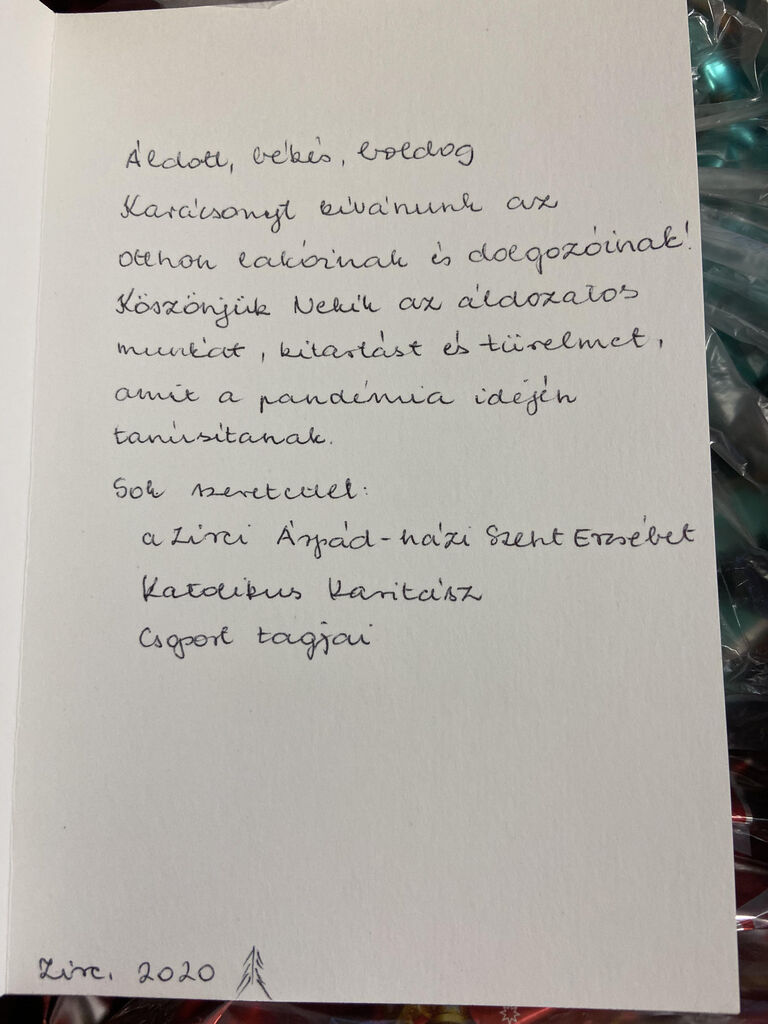 Áldott, békés, boldog
Karácsonyt kívánunk az
otthon lakóinak és dolgozóinak!
Köszönjük Nekik az áldozatos
munkát, kitartást és türelmet,
amit a pandémia idején
tanúsítanak.
Sok szeretettel:
a Zirci Árpád-házi Szent Erzsébet
Katolikus Karitász
Csoport tagjai
Zirc. 2020